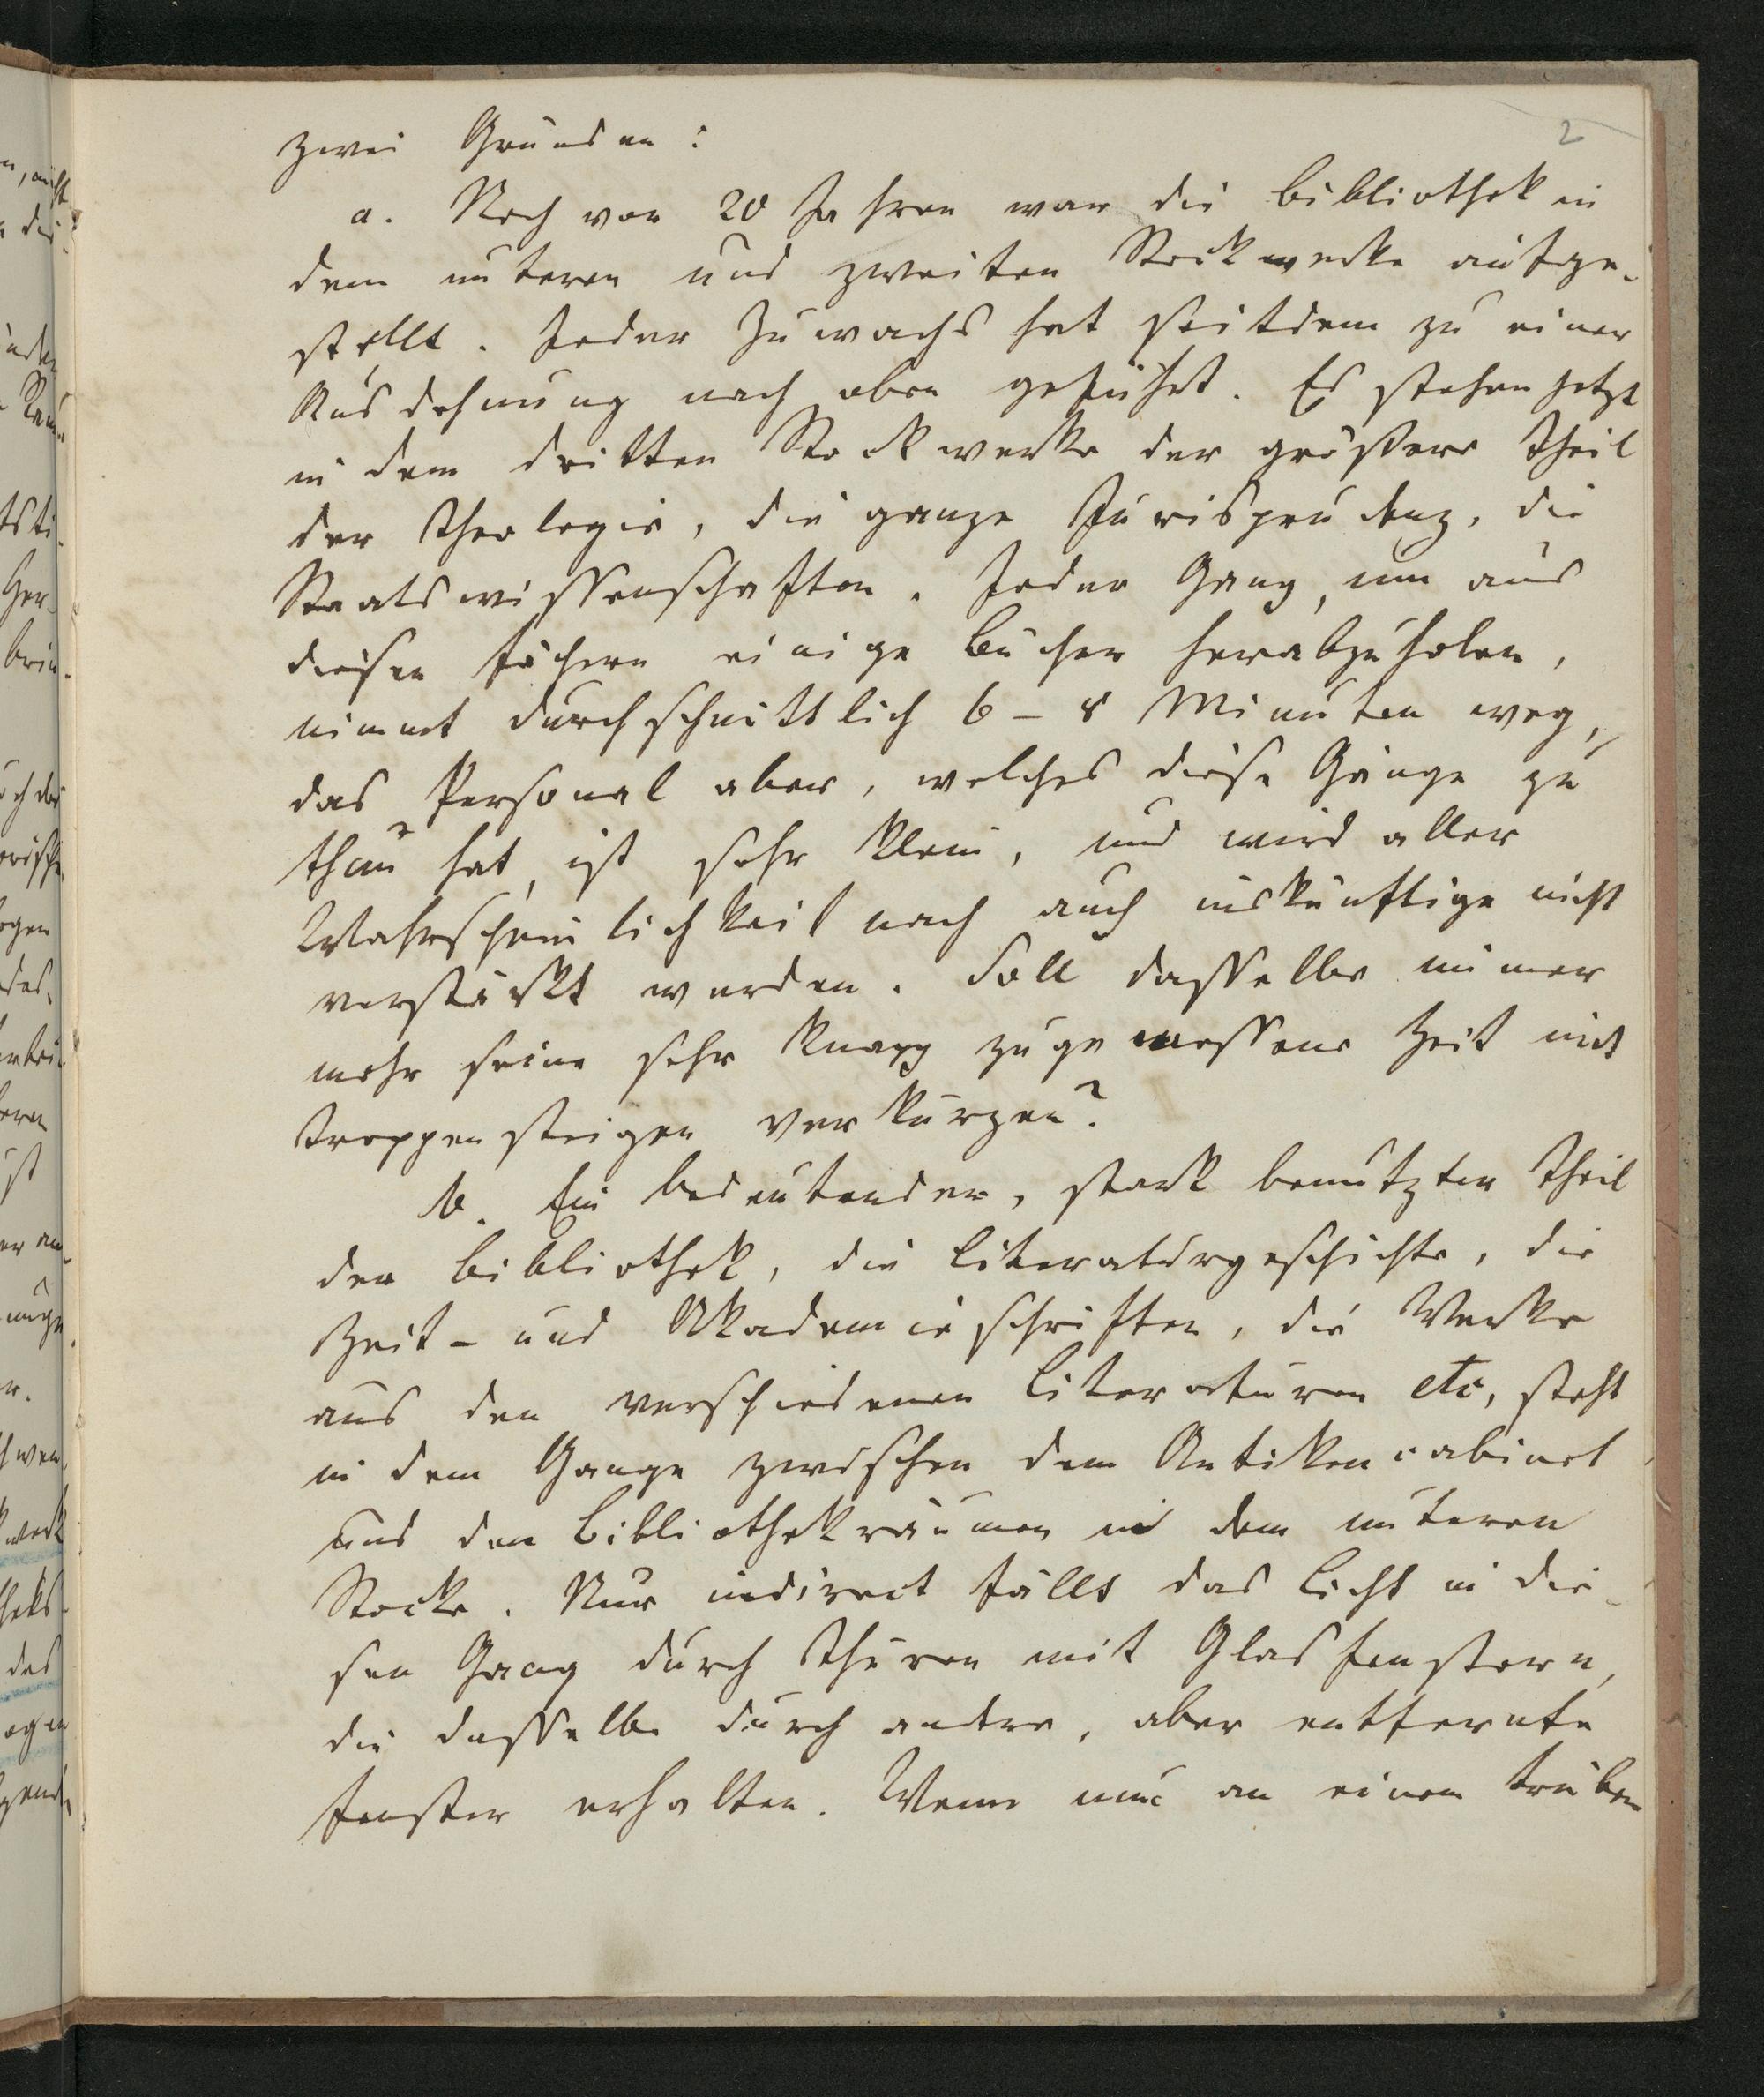 2
zwei Gründen:
a. Noch vor 20 Jahren war die Bibliothek in
dem unteren und zweiten Stockwerke aufge-
stellt. Jeder Zuwachs hat seitdem zu einer
Ausdehnung nach oben geführt. Es stehen jetzt
in dem dritten Stockwerke der grössere Theil
der Theologie, die ganze Jurisprudenz, die
Staatswissenschaften. Jeder Gang, um aus
diesen Fächern einige Bücher herabzuholen,
nimmt durchschnittlich 6 – 8 Minuten weg,
das Personal aber, welches diese Gänge zu
thun hat, ist sehr klein, und wird aller
Wahrscheinlichkeit nach auch inskünftige nicht
verstärkt werden. Soll dasselbe immer
mehr seine sehr knapp zugemessene Zeit mit
Treppensteigen verkürzen?
b. Ein bedeutender, stark benutzter Theil
der Bibliothek, die Literaturgeschichte, die
Zeit- und Akademieschriften, die Werke
aus den verschiedenen Literaturen etc, steht
in dem Gange zwischen dem Antikencabinet
und den Bibliothekräumen in dem unteren
Stocke. Nur indirect fällt das Licht in die-
sen Gang durch Thüren mit Glasfenstern,
die dasselbe durch andere, aber entfernte
Fenster erhalten. Wenn nun an einem trüben